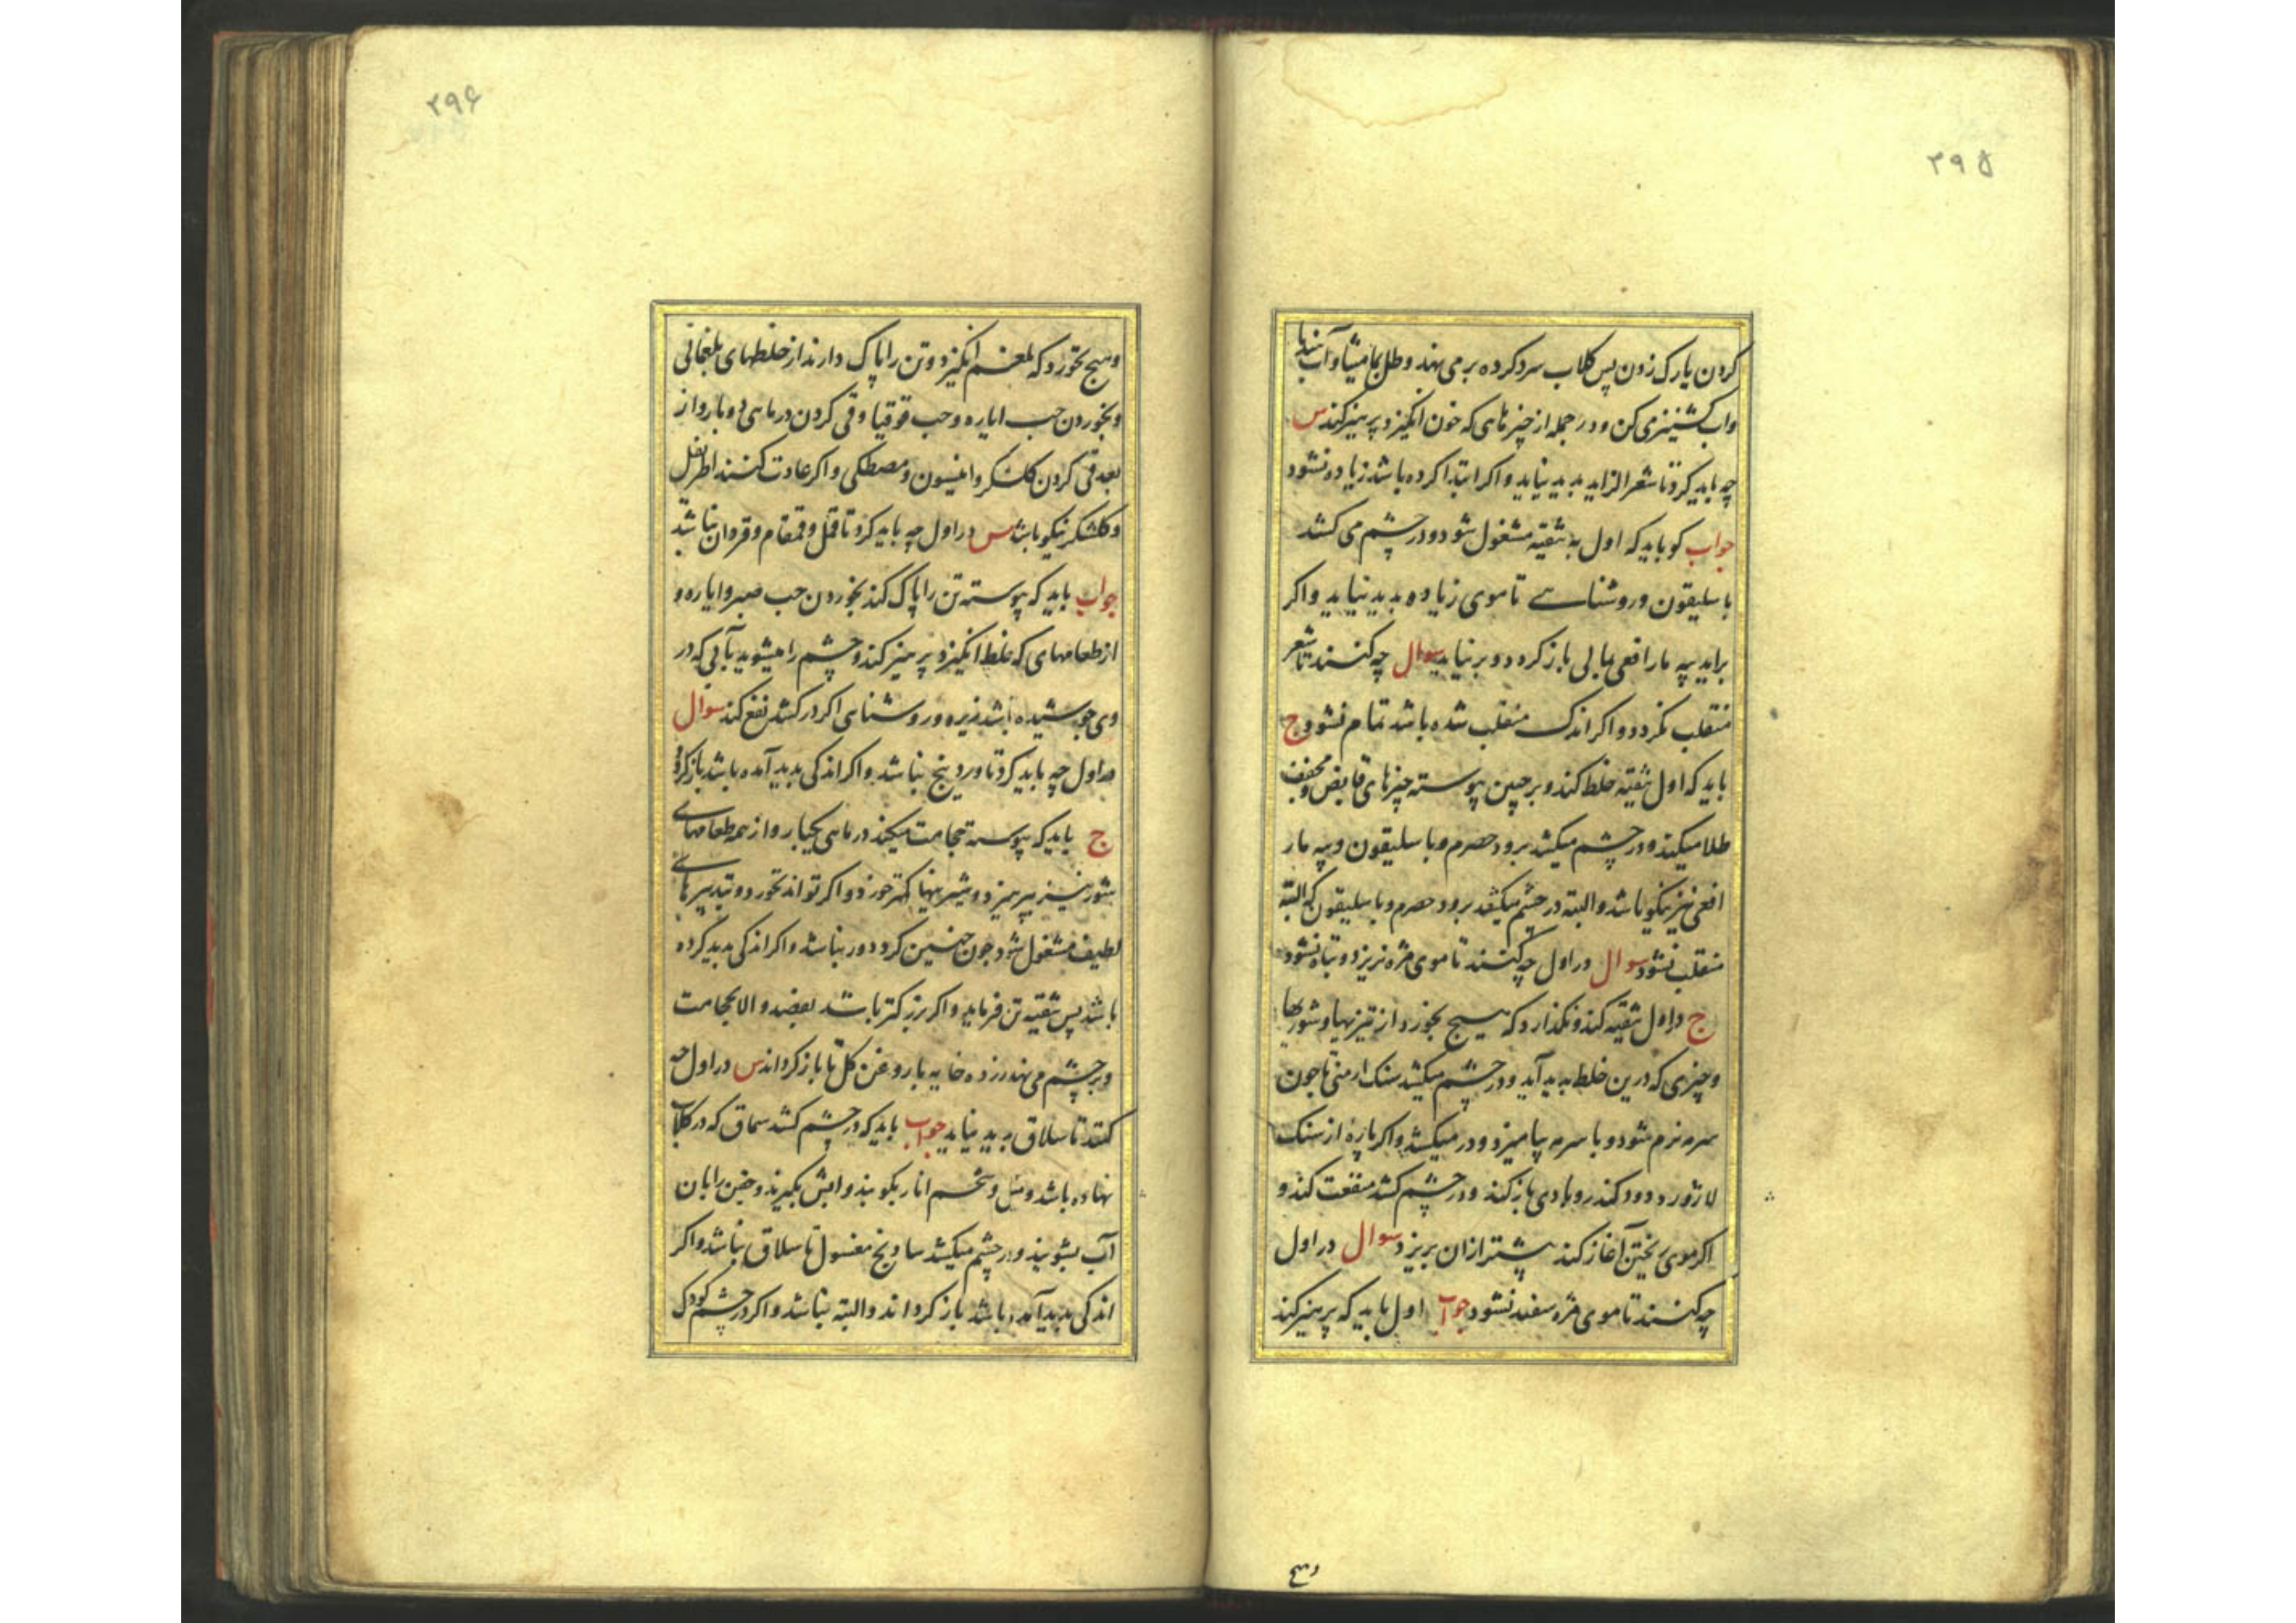 ۲۹۵
کردن یا رک زدن پس کلاب سرد کرده بر می نهد و طلی بمامیثا و آب
واب کشنیز می کن و در جمله از چیزهای که خون انکیزد پرهیز کند س
چه باید کرد تا شعر الزاید بدید نیاید و اکر ابتدا کرده باشد زیاده نشود
جواب کو باید که اول به تنقیه مشغول شود و در چشم می کشد
باسلیقون و روشناسے تا موی زیاده بدید نیاید و اکر
براید پیه مار افعی بمالی باز کردد و بر نیاید سوال چه کنند تا شعر
منقلب نکردد و اکر اندک منقلب شده باشد تمام نشود ج
باید که اول تنقیه خلط کند و بر جبین پیوسته چیزهای قابض و مجفف
طلا میکند و در چشم میکشد برود حصرم و باسلیقون و پیه مار
افعی نیز نیکو باشد و البته در چشم میکشد برود حصرم و باسلیقون که البته
منقلب نشود سوال در اول چه کنند تا موی مژه نریزد و تباه نشود
ج در اول تنقیه کند و نکذارد که هیچ بخورد از تیزیها و شوریها
و چیزی که درین خلط بدید آید و در چشم میکشد سنک ارمنی تا جون
سرمه نرم شود و با سرمه بیامیزد و در میکشد و اکر پاره از سنک
لاژورد و دود کندر و بادی باز کند و در چشم کشد منفعت کند و
اکر موی ریختن آغاز کند پیشتر ازان بریزد سوال در اول
چه کنند تا موی مژه سفید نشود جواب اول باید که پرهیز کند
۲۹۶
وهیچ نخورد که بلغم انکیزد و تن را پاک دارند از خلطهای بلغمانی
و بخوردن حب ایاره و حب قوقیا و قی کردن در ماهی دو بار و از
بعد قی کردن کلشکر و انیسون و مصطکی و اکر عادت کنند اطریفل
و کلشکر نیکو باشد س در اول چه باید کرد تا قمل و قمقام و قردان نباشد
جواب باید که پیوسته تن را پاک کند بخوردن حب صبر و ایاره و
از طعامهای که غلظ انکیزد پرهیز کند و چشم را میشوید بآبی که در
وی جوشیده باشد زیره و روشنایی اکر در کشد نفع کند سوال
در اول چه باید کرد تا وردینج نباشد و اکر اندکی بدید آمده باشد باز کردد
ج باید که پیوسته حجامت میکند در ماهی یکبار و از همه طعامهاے
شور نیز بپرهیزد و شیرینیها کمتر خورد و اکر تواند نخورد و بتدبیرهاے
لطیف مشغول شود جون چنین کرد درد نباشد و اکر اندکی بدید کرده
باشد پس تنقیه تن فرماید و اکر بزرکتر باشد بفصد و الا بحجامت
و بر چشم می نهد زرده خایه با روغن کل تا باز کرداند س در اول چه
کنند تا سلاق بدید نیاید جواب باید که در چشم کشد سماق که در کلاب
نهاده باشد و تخم انار بکوبند و آبش بکیرند و جفن را بان
آب بشویند و در چشم میکشد ساونج مغسول تا سلاق نباشد و اکر
اندکی بدید آمده باشد باز کرداند و البته نباشد و اکر در چشم کودک